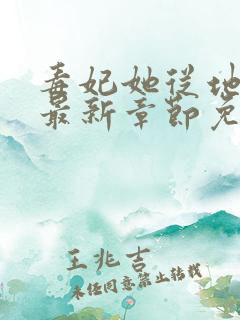 毒妃她从地
最新章节免
王兆吉
未经同意禁止转载